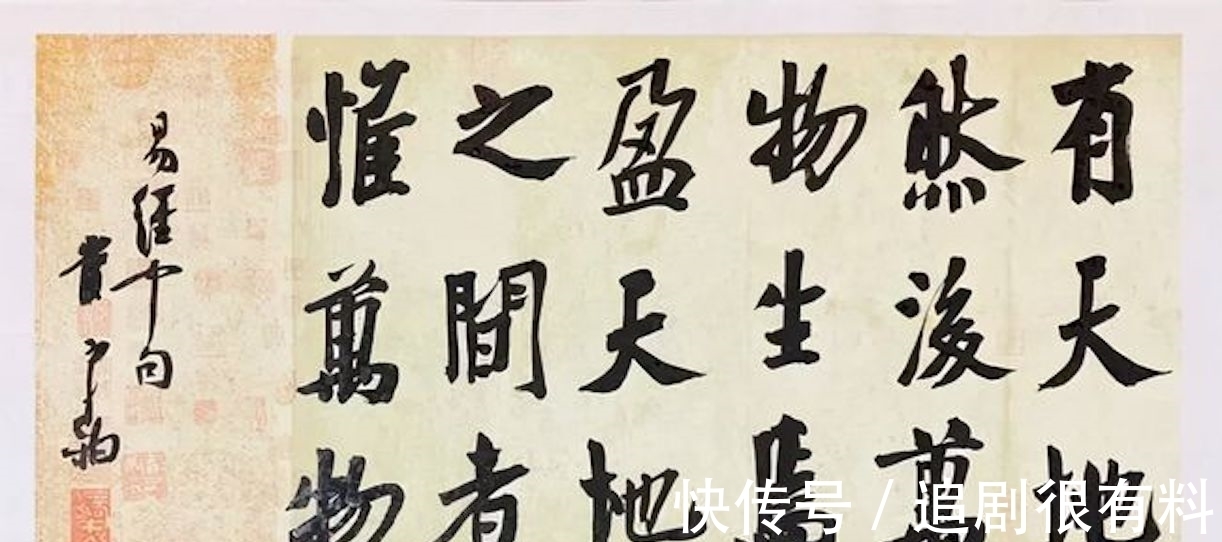 有天地
然後萬
物生焉
盈天地
之間者
惟萬物
易經中句
快传号 / 追剧很有料